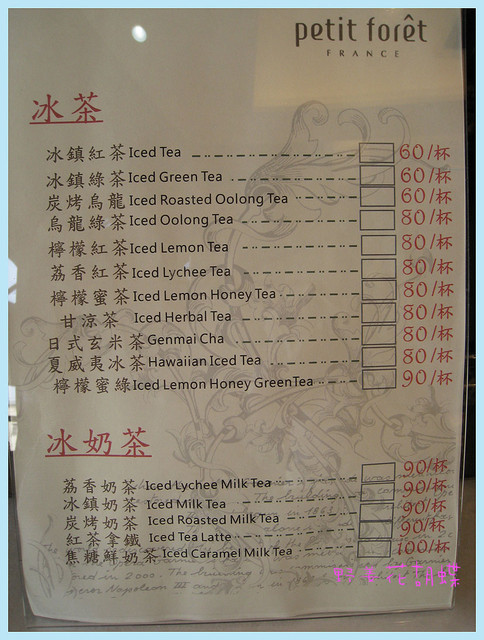 petit forêt
FRANCE
冰茶
冰鎮紅茶 Iced Tea 60/杯
冰鎮綠茶 Iced Green Tea 60/杯
炭烤烏龍 Iced Roasted Oolong Tea 60/杯
烏龍綠茶 Iced Oolong Tea 80/杯
檸檬紅茶 Iced Lemon Tea 80/杯
荔香紅茶 Iced Lychee Tea 80/杯
檸檬蜜茶 Iced Lemon Honey Tea 80/杯
甘涼茶 Iced Herbal Tea 80/杯
日式玄米茶 Genmai Cha 80/杯
夏威夷冰茶 Hawaiian Iced Tea 80/杯
檸檬蜜綠 Iced Lemon Honey GreenTea 90/杯
冰奶茶
荔香奶茶 Iced Lychee Milk Tea 90/杯
冰鎮奶茶 Iced Milk Tea 90/杯
炭烤奶茶 Iced Roasted Milk Tea 90/杯
紅茶拿鐵 Iced Tea Latte 90/杯
焦糖鮮奶茶 Iced Caramel Milk Tea 100/杯